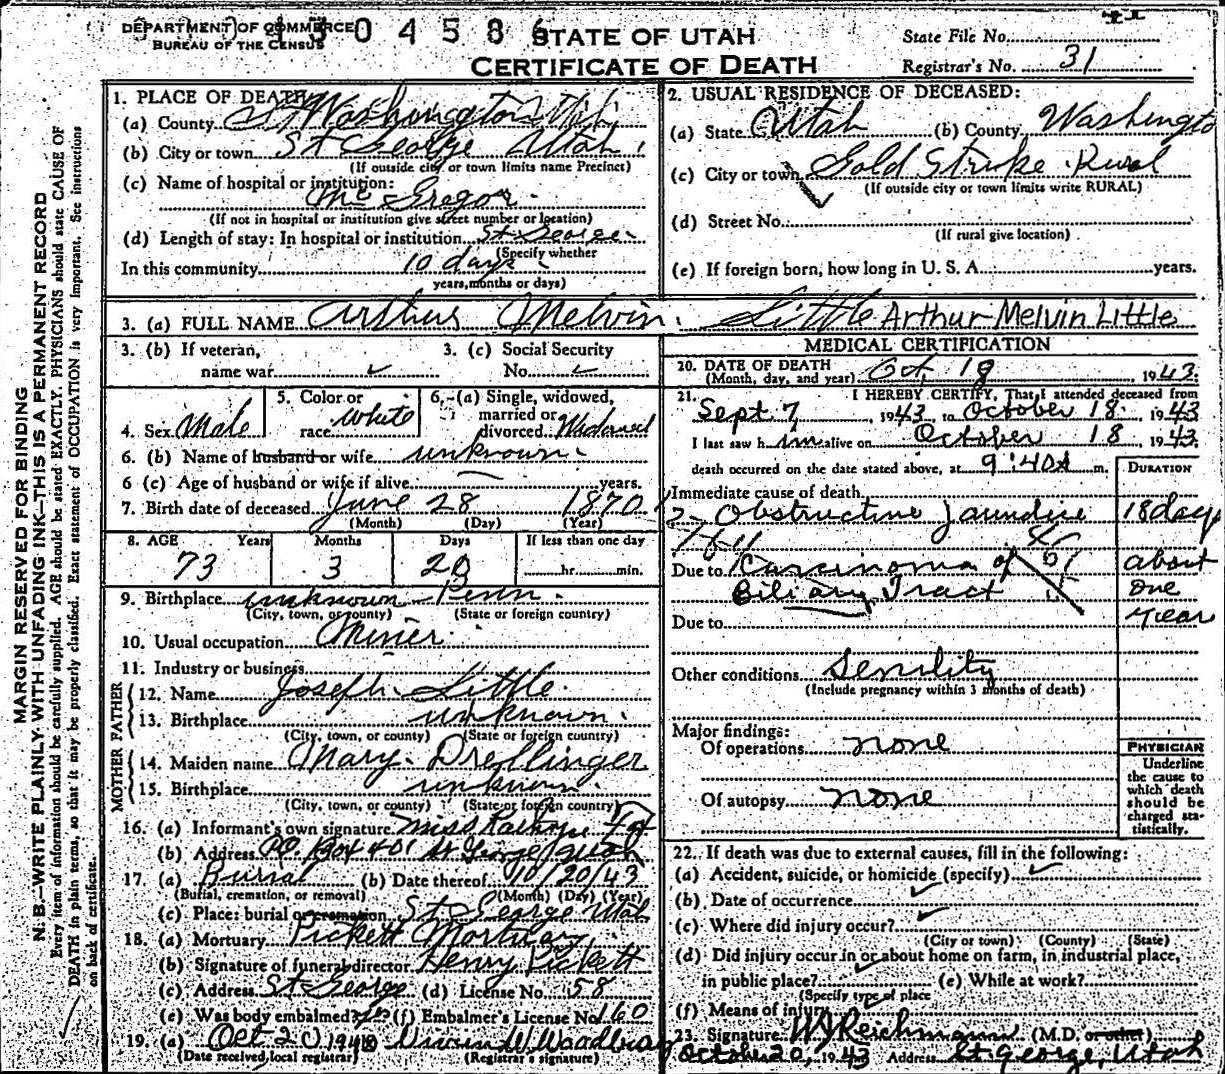 DEPARTMENT OF COMMERCE
BUREAU OF THE CENSUS
304586
STATE OF UTAH
CERTIFICATE OF DEATH
State File No.
Registrar's No. 31
MARGIN RESERVED FOR BINDING
N. B.—WRITE PLAINLY WITH UNFADING INK—THIS IS A PERMANENT RECORD
Every item of information should be carefully supplied. AGE should be stated EXACTLY. PHYSICIANS should state CAUSE OF
DEATH in plain terms, so that it may be properly classified. Exact statement of OCCUPATION is very important. See instructions
on back of certificate.
1. PLACE OF DEATH
(a) County Washington Utah
(b) City or town St George Utah
(If outside city or town limits name Precinct)
(c) Name of hospital or institution:
McGregor
(If not in hospital or institution give street number or location)
(d) Length of stay: In hospital or institution St George
(Specify whether
In this community 10 days
years, months or days)
2. USUAL RESIDENCE OF DECEASED:
(a) State Utah (b) County Washingto
(c) City or town Gold Strike Rural
(If outside city or town limits write RURAL)
(d) Street No.
(If rural give location)
(e) If foreign born, how long in U. S. A. years.
3. (a) FULL NAME Arthur Melvin Little Arthur Melvin Little
3. (b) If veteran,
name war
3. (c) Social Security
No.
4. Sex Male
5. Color or
race white
6. (a) Single, widowed,
married or
divorced Widowed
6. (b) Name of husband or wife unknown
6 (c) Age of husband or wife if alive years.
7. Birth date of deceased June 28 1870
(Month) (Day) (Year)
8. AGE Years Months Days If less than one day
73 3 20 hr. min.
9. Birthplace unknown Penn.
(City, town, or county) (State or foreign country)
10. Usual occupation Miner
11. Industry or business
FATHER
12. Name Joseph Little
13. Birthplace unknown
(City, town, or county) (State or foreign country)
MOTHER
14. Maiden name Mary Drellinger
15. Birthplace unknown
(City, town, or county) (State or foreign country)
16. (a) Informant's own signature Miss
(b) Address P.O. Box 401 St George Utah
17. (a) Burial (b) Date thereof 10/20/43
(Burial, cremation, or removal) (Month) (Day) (Year)
(c) Place: burial or cremation St George Utah
18. (a) Mortuary Pickett Mortuary
(b) Signature of funeral director Henry Pickett
(c) Address St George (d) License No. 58
(e) Was body embalmed? yes (f) Embalmer's License No. 160
19. (a) Oct 20 194 W. Woodbury
(Date received, local registrar) (Registrar's signature)
MEDICAL CERTIFICATION
20. DATE OF DEATH
(Month, day, and year) Oct 18 1943
21. I HEREBY CERTIFY, That I attended deceased from
Sept 7 1943 to October 18 1943
I last saw him alive on October 18 1943
death occurred on the date stated above, at 9:40A m.
DURATION
Immediate cause of death
Obstructive jaundice 18 days
Due to Carcinoma of about
Biliary Tract one
Due to year
Other conditions Senility
(Include pregnancy within 3 months of death)
Major findings:
Of operations none
Of autopsy none
PHYSICIAN
Underline
the cause to
which death
should be
charged sta-
tistically.
22. If death was due to external causes, fill in the following:
(a) Accident, suicide, or homicide (specify)
(b) Date of occurrence
(c) Where did injury occur?
(City or town) (County) (State)
(d) Did injury occur in or about home on farm, in industrial place,
in public place? (e) While at work?
(Specify type of place
(f) Means of injury
23. Signature W J Reichmann (M.D. or other)
October 20, 1943 Address St George, Utah